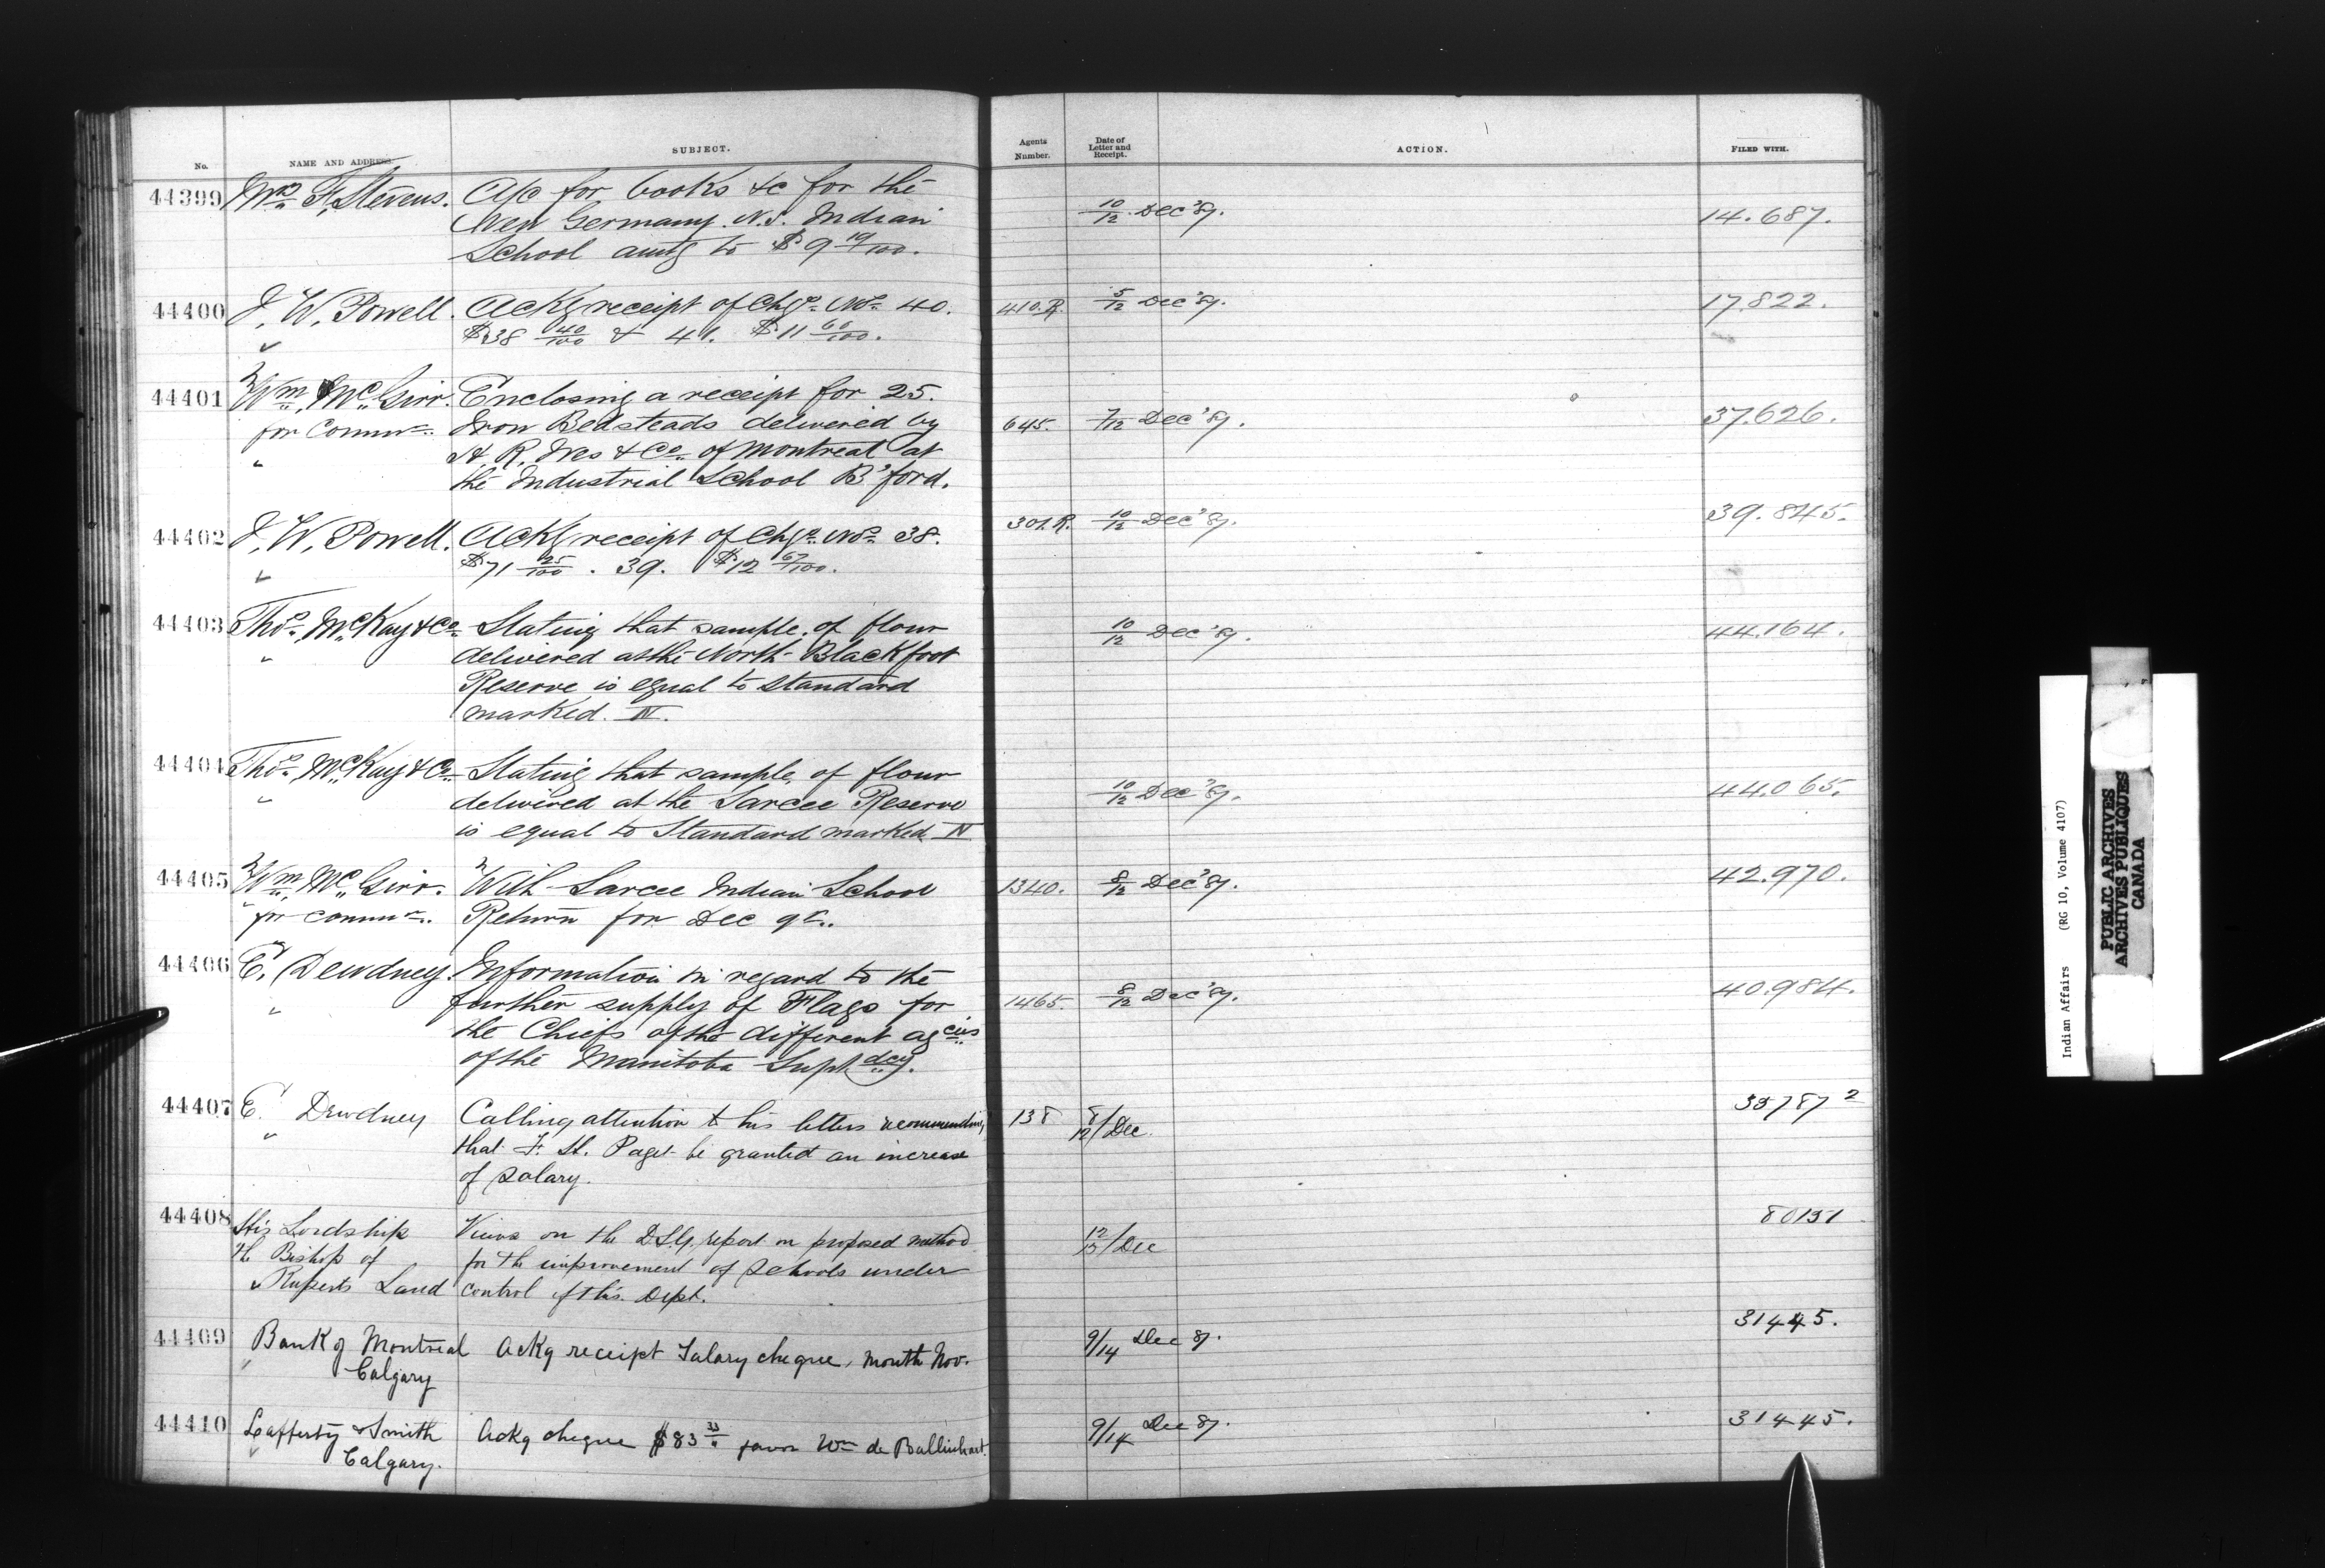 No.
NAME AND ADDRESS.
SUBJECT.
Agents Number.
Date of Letter and Receipt.
ACTION.
FILED WITH.
44399 Mrs F. Stevens. A/c for books &c for the
New Germany. N.S. Indian
School amtg to $9 19/100.
10/12 Dec '87. 14.687.
44400 I. W. Powell. Ackg receipt of Chqs Nos 40.
$38 40/100 & 41. $11 60/100.
410.R. 5/12 Dec '87. 17.822.
44401 Wm McGirr. Enclosing a receipt for 25.
for Commr. Iron Bedsteads delivered by
H. R. Ives & Co. of Montreal at
the Industrial School B'ford.
645. 7/12 Dec '87. 37.626.
44402 I. W. Powell. Ackg receipt of Chqs Nos 38.
$71 25/100. 39. $12 67/100.
301.R. 10/12 Dec '87. 39.845.
44403 Thos. McKay & Co. Stating that sample of flour
delivered at the North Blackfoot
Reserve is equal to Standard
marked. IV.
10/12 Dec '87. 44.164.
44404 Thos. McKay & Co. Stating that sample of flour
delivered at the Sarcee Reserve
is equal to Standard marked IV
10/12 Dec '87. 44.065.
44405 Wm McGirr. With Sarcee Indian School
for Commr. Return for Dec qr.
1340. 8/12 Dec '87. 42.970.
44406 E. Dewdney. Information in regard to the
further supply of Flags for
the Chiefs of the different agcies
of the Manitoba Suptdcy.
1465. 8/12 Dec '87. 40.984.
44407 E. Dewdney Calling attention to his letters recommending
that F. H. Paget be granted an increase
of Salary.
138 8/12/Dec. 35787 2
44408 His Lordship Views on the D.S.G. report on proposed method
the Bishop of for the improvement of Schools under
Ruperts Land control of this Dept.
12/15/Dec 80151
44409 Bank of Montreal Ackg receipt Salary cheque, month Nov.
Calgary
9/14 Dec 87. 31445.
44410 Lafferty & Smith Ackg cheque $83 33 favor Wm de Ballinhard.
Calgary.
9/14 Dec 87. 31445.
Indian Affairs (RG 10, Volume 4107)
PUBLIC ARCHIVES
ARCHIVES PUBLIQUES
CANADA